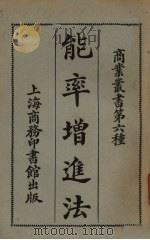 商業叢書第六種
能率增進法
上海商務印書館出版